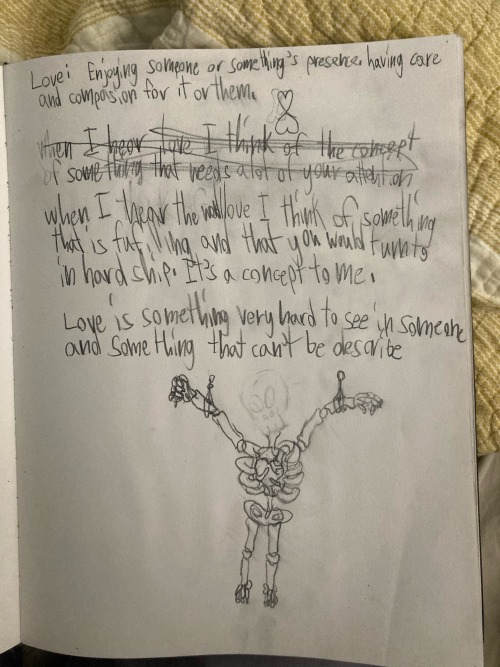 Love: Enjoying someone or something's presence. having care
and compassion for it or them.
When I hear love I think of the concept
of something that needs a lot of your attention
when I hear the word love I think of something
that is fulfilling and that you would turn to
in hard ship. It's a concept to me.
Love is something very hard to see in someone
and something that can't be describe